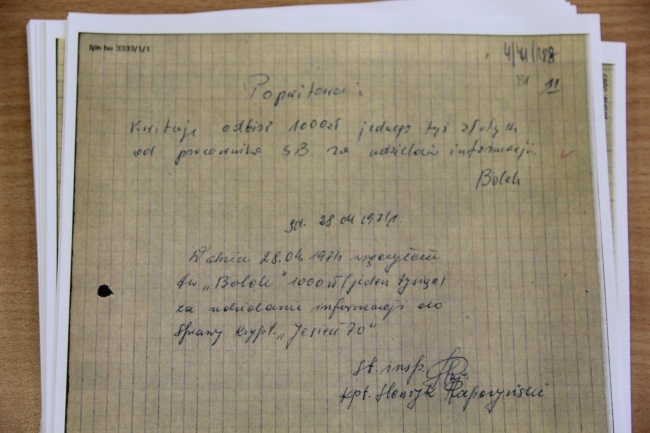 ipn bu 3333/1/1
81 11
Pokwitowanie
Kwituję odbiór 1000 zł jednego tyś złotych
od pracownika SB za udzielanie informacji.
Bolek
gd. 28 04 1971 r.
W dniu 28.04.1971 wypłaciłem
tw „Bolek" 1000 zł (jeden tysiąc)
za udzielanie informacji do
sprawy krypt. „Jesień 70"
St. insp.
kpt. Henryk